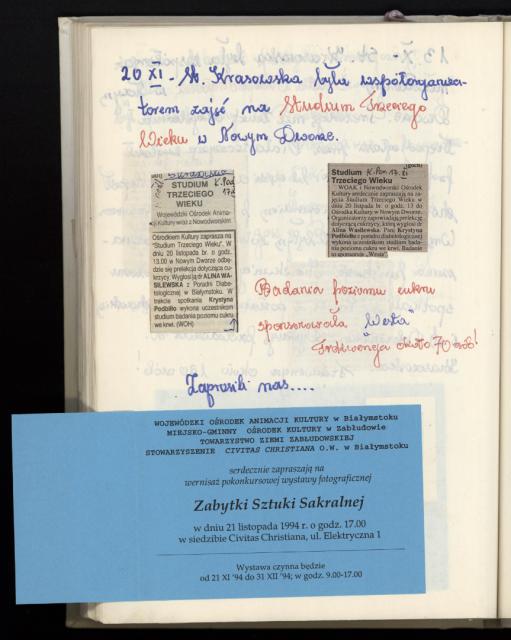 20 XI - St. Krasowska była współorganiza-
torem zajęć na Studium Trzeciego
Wieku w Nowym Dworze.
K. Por.
STUDIUM
TRZECIEGO
WIEKU
Wojewódzki Ośrodek Anima-
cji Kultury wraz z Nowodworskim
Ośrodkiem Kultury zaprasza na
"Studium Trzeciego Wieku". W
dniu 20 listopada br. o godz.
13.00 w Nowym Dworze odbę-
dzie się prelekcja dotycząca cu-
krzycy. Wygłosi ją dr ALINA WA-
SILEWSKA z Poradni Diabe-
tologicznej w Białymstoku. W
trakcie spotkania Krystyna
Podbiło wykona uczestnikom
studium badania poziomu cukru
we krwi. (WOH)
Studium K. Por. 17. XI
Trzeciego Wieku
WOAK i Nowodworski Ośrodek
Kultury serdecznie zapraszają na za-
jęcia Studium Trzeciego Wieku w
dniu 20 listopada br. o godz. 13 do
Ośrodka Kultury w Nowym Dworze.
Organizatorzy zapowiadają prelekcję
dotyczącą cukrzycy, którą wygłosi dr
Alina Wasilewska. Pani Krystyna
Podbiłło z poradni diabetologicznej
wykona uczestnikom studium bada-
nia poziomu cukru we krwi. Badanie
to sponsoruje „Westa".
Badania poziomu cukru
sponsorowała "Westa"
Frekwencja około 70 osób!
Zaprosili nas....
WOJEWÓDZKI OŚRODEK ANIMACJI KULTURY w Białymstoku
MIEJSKO-GMINNY OŚRODEK KULTURY w Zabłudowie
TOWARZYSTWO ZIEMI ZABŁUDOWSKIEJ
STOWARZYSZENIE CIVITAS CHRISTIANA O.W. w Białymstoku
serdecznie zapraszają na
wernisaż pokonkursowej wystawy fotograficznej
Zabytki Sztuki Sakralnej
w dniu 21 listopada 1994 r. o godz. 17.00
w siedzibie Civitas Christiana, ul. Elektryczna 1
Wystawa czynna będzie
od 21 XI '94 do 31 XII '94; w godz. 9.00-17.00